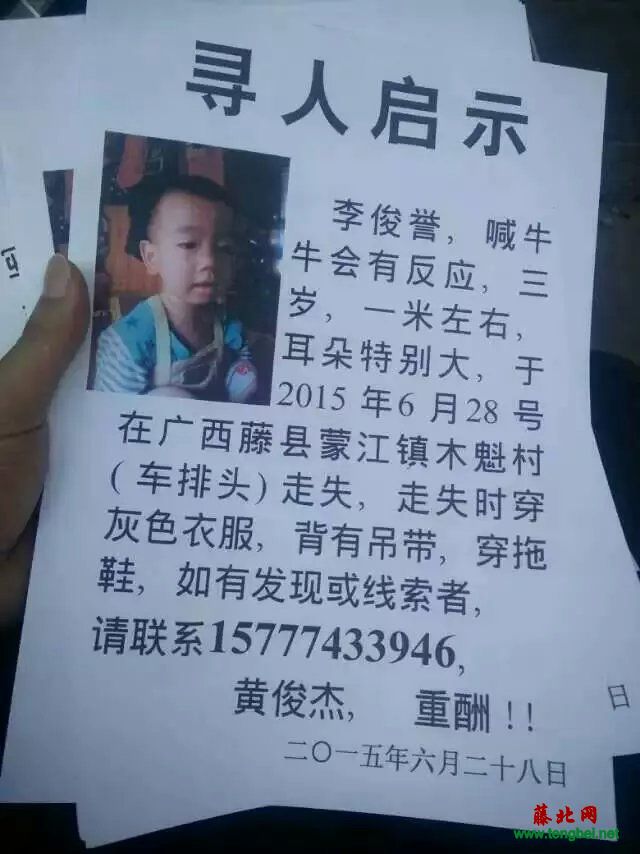 寻人启示
李俊誉，喊牛
牛会有反应，三
岁，一米左右，
耳朵特别大，于
2015 年6 月28 号
在广西藤县蒙江镇木魁村
(车排头)走失，走失时穿
灰色衣服，背有吊带，穿拖
鞋，如有发现或线索者，
请联系15777433946，
黄俊杰， 重酬!!
二〇一五年六月二十八日
日
藤北网
www.tengbei.net